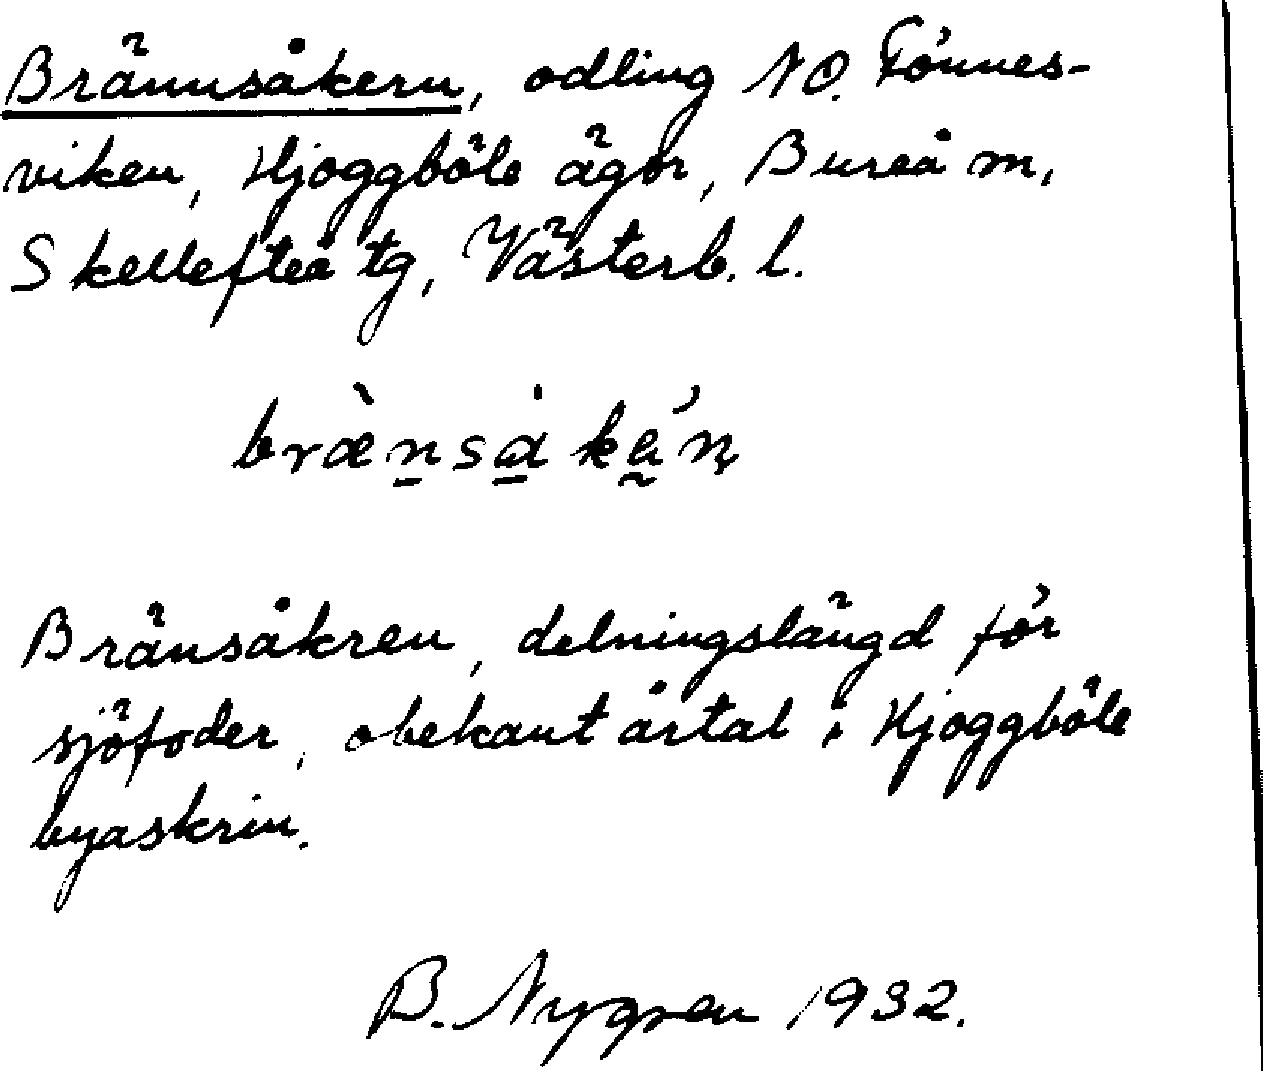 Brännsåkern, odling NO. Tönnes-
viken, Hjoggböle ägor, Bureå m,
Skellefteå tg, Västerb. l.
bræ̀n̠sa̠̍kḛ́n̥
Bränsåkren, delningslängd för
sjöfoder, obekant årtal i Hjoggböle
byaskrin.
B. Nygren 1932.